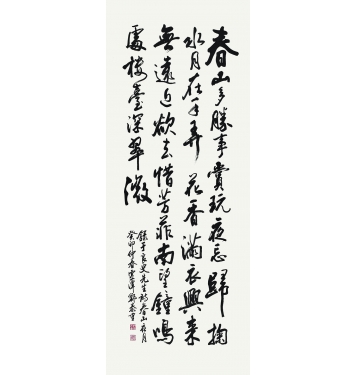 春山多勝事賞玩夜忘歸掬
水月在手弄花香滿衣興來
無遠近欲去惜芳菲南望鐘鳴
處樓臺深翠微
錄于良史先生詩春山夜月
癸卯仲春